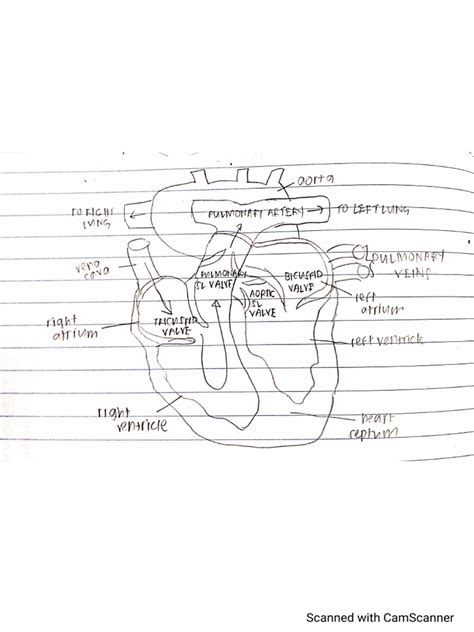 aorta
TO RIGHT
LUNG
PULMONARY ARTERY
TO LEFT LUNG
vena
cava
PULMONARY
SL VALVE
BICUSPID
VALVE
PULMONARY
VEINS
AORTIC
SL
VALVE
left
atrium
right
atrium
TRICUSPID
VALVE
left ventricle
right
ventricle
heart
septum
Scanned with CamScanner